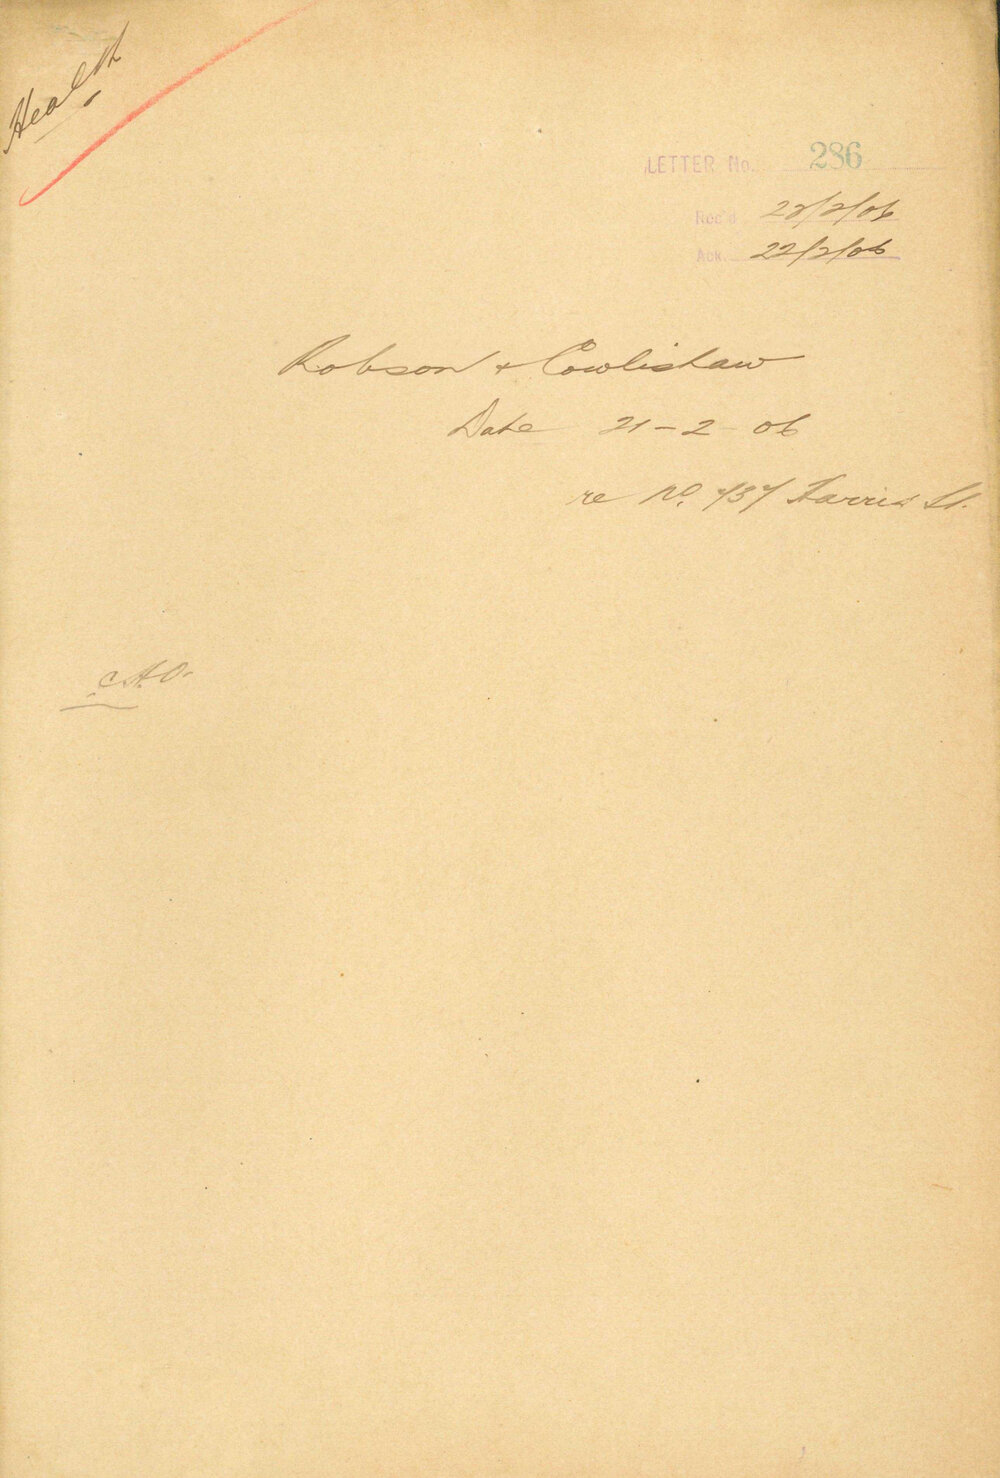 Health
LETTER No. 286
Rec'd 22/2/06
Ack. 22/2/06
Robson & Cowlishaw
Date 21-2-06
re No. 737 Harris St.